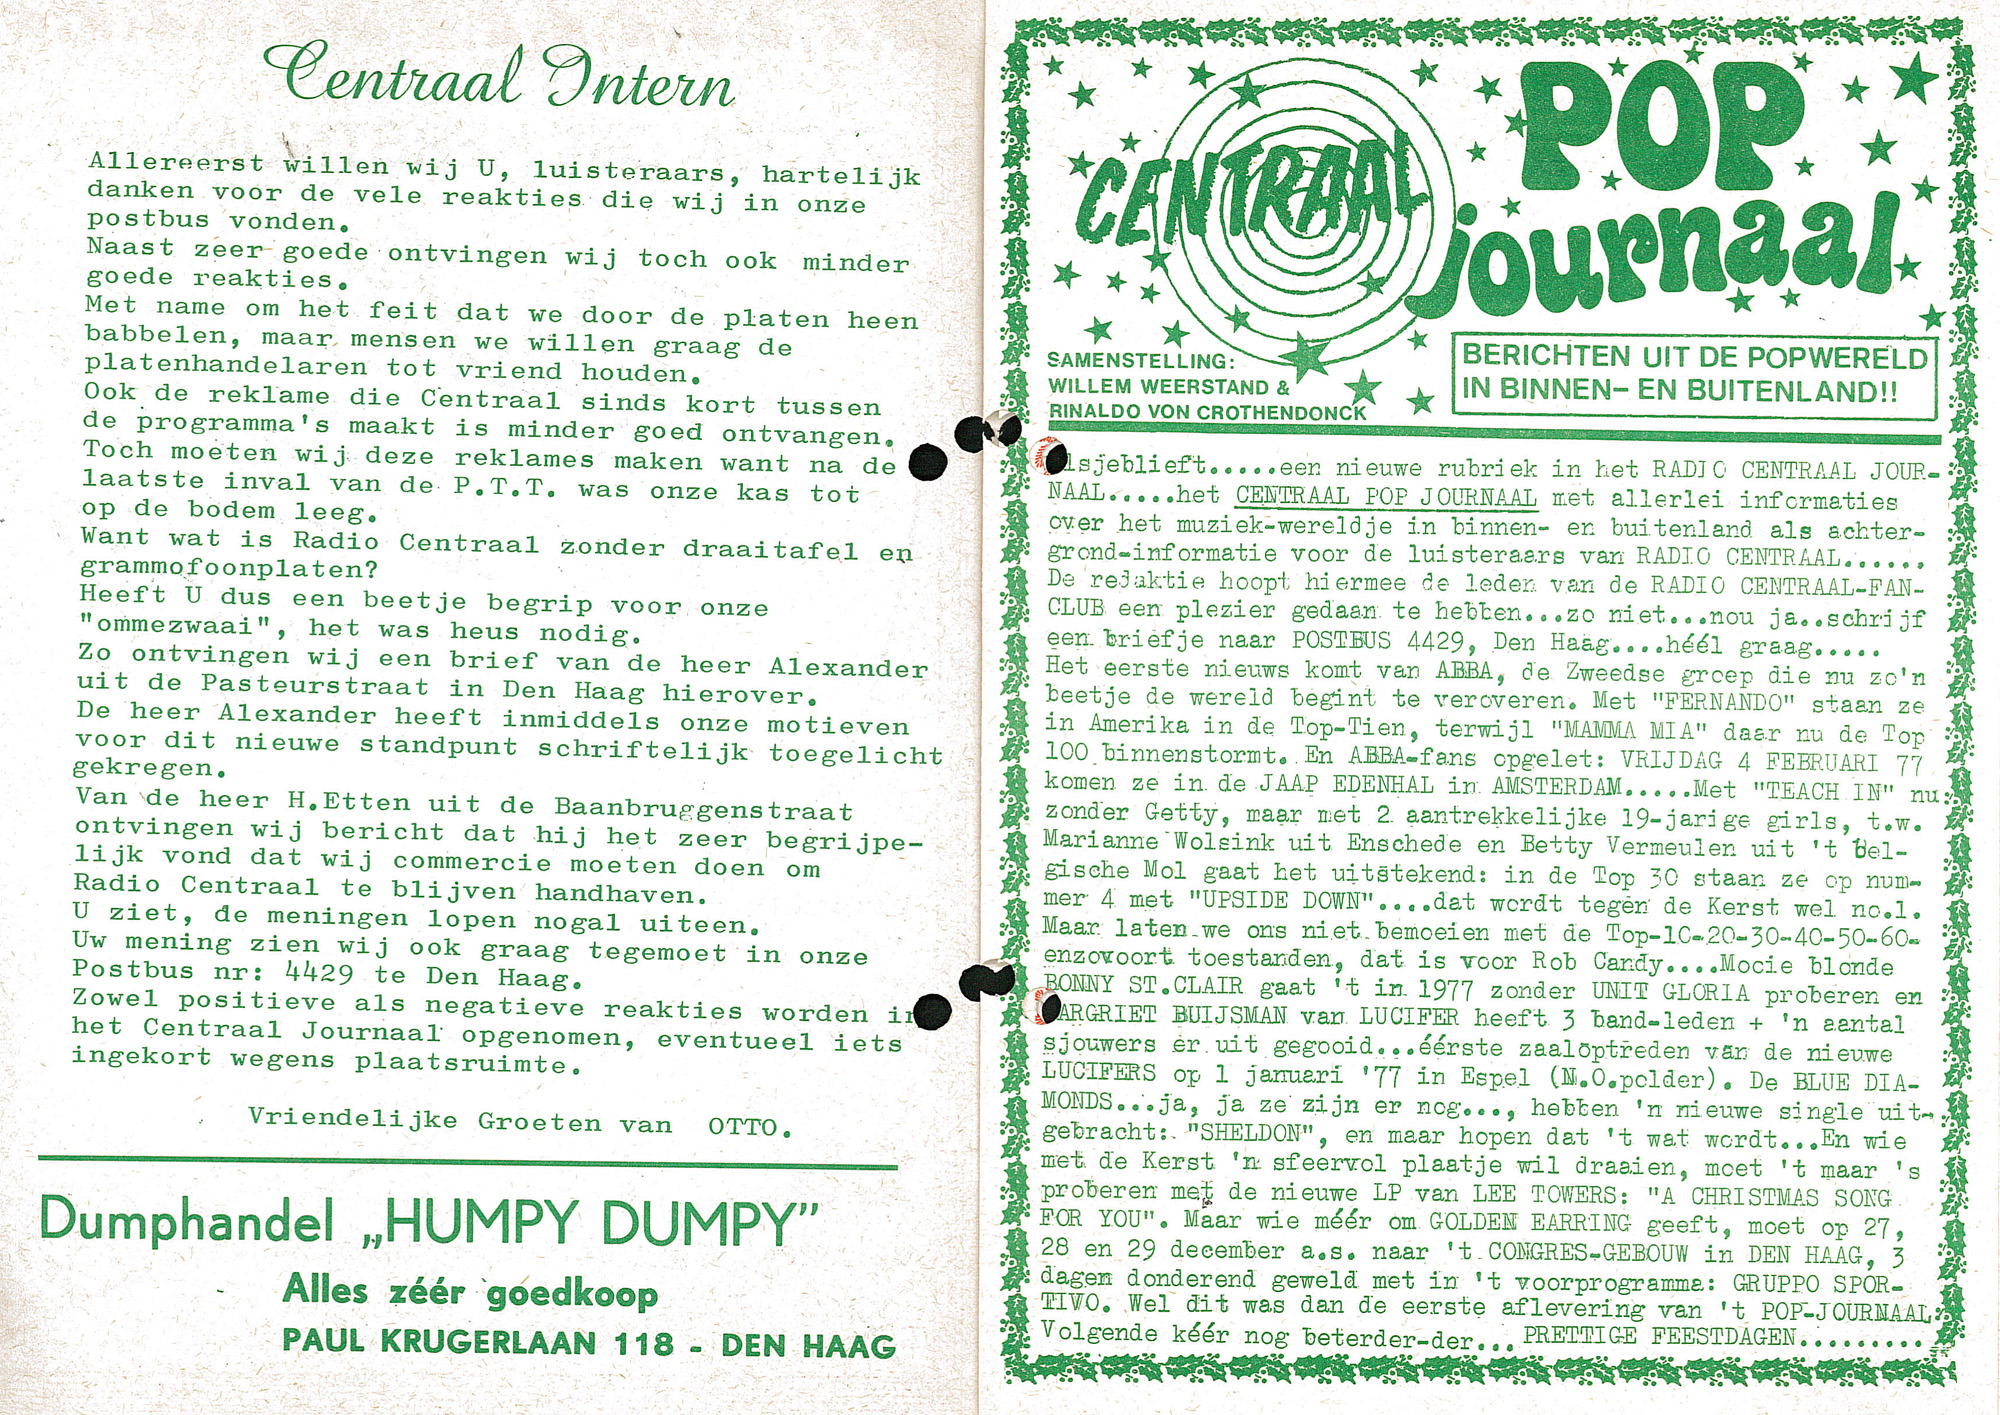 Centraal Intern
Allereerst willen wij U, luisteraars, hartelijk
danken voor de vele reakties die wij in onze
postbus vonden.
Naast zeer goede ontvingen wij toch ook minder
goede reakties.
Met name om het feit dat we door de platen heen
babbelen, maar mensen we willen graag de
platenhandelaren tot vriend houden.
Ook de reklame die Centraal sinds kort tussen
de programma's maakt is minder goed ontvangen.
Toch moeten wij deze reklames maken want na de
laatste inval van de P.T.T. was onze kas tot
op de bodem leeg.
Want wat is Radio Centraal zonder draaitafel en
grammofoonplaten?
Heeft U dus een beetje begrip voor onze
"ommezwaai", het was heus nodig.
Zo ontvingen wij een brief van de heer Alexander
uit de Pasteurstraat in Den Haag hierover.
De heer Alexander heeft inmiddels onze motieven
voor dit nieuwe standpunt schriftelijk toegelicht
gekregen.
Van de heer H.Etten uit de Baanbruggenstraat
ontvingen wij bericht dat hij het zeer begrijpe-
lijk vond dat wij commercie moeten doen om
Radio Centraal te blijven handhaven.
U ziet, de meningen lopen nogal uiteen.
Uw mening zien wij ook graag tegemoet in onze
Postbus nr: 4429 te Den Haag.
Zowel positieve als negatieve reakties worden in
het Centraal Journaal opgenomen, eventueel iets
ingekort wegens plaatsruimte.
Vriendelijke Groeten van OTTO.
Dumphandel „HUMPY DUMPY”
Alles zéér goedkoop
PAUL KRUGERLAAN 118 - DEN HAAG
CENTRAAL
POP
journaal
SAMENSTELLING:
WILLEM WEERSTAND &
RINALDO VON CROTHENDONCK
BERICHTEN UIT DE POPWERELD
IN BINNEN- EN BUITENLAND!!
lsjeblieft.....een nieuwe rubriek in het RADIO CENTRAAL JOUR-
NAAL.....het CENTRAAL POP JOURNAAL met allerlei informaties
over het muziek-wereldje in binnen- en buitenland als achter-
grond-informatie voor de luisteraars van RADIO CENTRAAL......
De redaktie hoopt hiermee de leden van de RADIO CENTRAAL-FAN-
CLUB een plezier gedaan te hebben...zo niet...nou ja..schrijf
een briefje naar POSTBUS 4429, Den Haag....héél graag.....
Het eerste nieuws komt van ABBA, de Zweedse groep die nu zo'n
beetje de wereld begint te veroveren. Met "FERNANDO" staan ze
in Amerika in de Top-Tien, terwijl "MAMMA MIA" daar nu de Top
100 binnenstormt. En ABBA-fans opgelet: VRIJDAG 4 FEBRUARI 77
komen ze in de JAAP EDENHAL in AMSTERDAM.....Met "TEACH IN" nu
zonder Getty, maar met 2 aantrekkelijke 19-jarige girls, t.w.
Marianne Wolsink uit Enschede en Betty Vermeulen uit 't Bel-
gische Mol gaat het uitstekend: in de Top 30 staan ze op num-
mer 4 met "UPSIDE DOWN"....dat wordt tegen de Kerst wel no.1.
Maar laten we ons niet bemoeien met de Top-10-20-30-40-50-60-
enzovoort toestanden, dat is voor Rob Candy....Mooie blonde
BONNY ST.CLAIR gaat 't in 1977 zonder UNIT GLORIA proberen en
ARGRIET BUIJSMAN van LUCIFER heeft 3 band-leden + 'n aantal
sjouwers er uit gegooid...éérste zaaloptreden van de nieuwe
LUCIFERS op 1 januari '77 in Espel (N.O.polder). De BLUE DIA-
MONDS...ja, ja ze zijn er nog..., hebben 'n nieuwe single uit-
gebracht: "SHELDON", en maar hopen dat 't wat wordt...En wie
met de Kerst 'n sfeervol plaatje wil draaien, moet 't maar 's
proberen met de nieuwe LP van LEE TOWERS: "A CHRISTMAS SONG
FOR YOU". Maar wie méér om GOLDEN EARRING geeft, moet op 27,
28 en 29 december a.s. naar 't CONGRES-GEBOUW in DEN HAAG, 3
dagen donderend geweld met in 't voorprogramma: GRUPPO SPOR-
TIVO. Wel dit was dan de eerste aflevering van 't POP-JOURNAAL
Volgende kéér nog beterder-der... PRETTIGE FEESTDAGEN.........